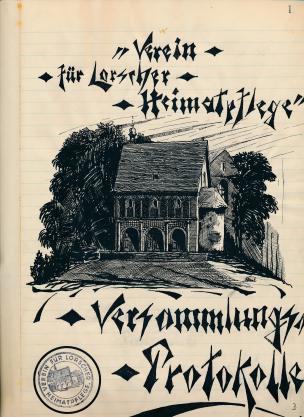 1
„Verein
für Lorscher
Heimatpflege"
Versammlungs-
Protokolle
VEREIN FÜR LORSCHER
HEIMATPFLEGE